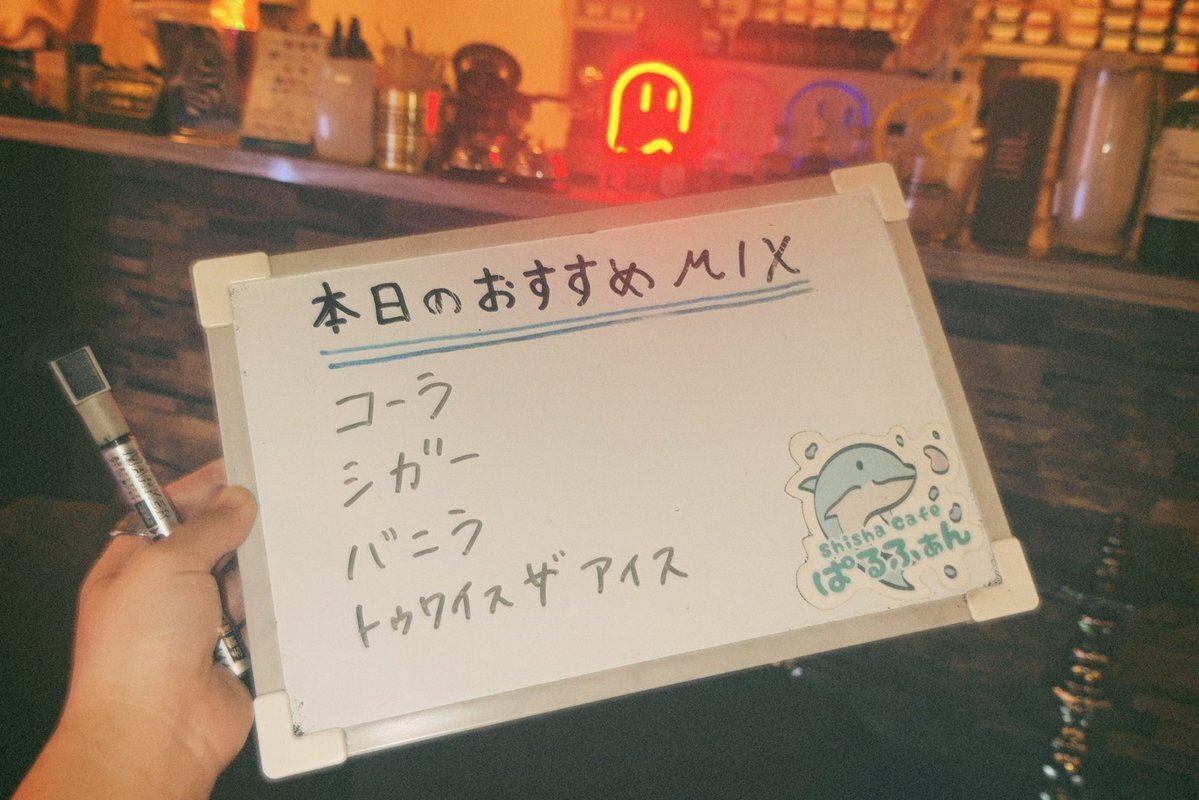 本日のおすすめMIX
コーラ
シガー
バニラ
トゥワイス ザ アイス
shisha cafe
ぱるふぁん
MARKER